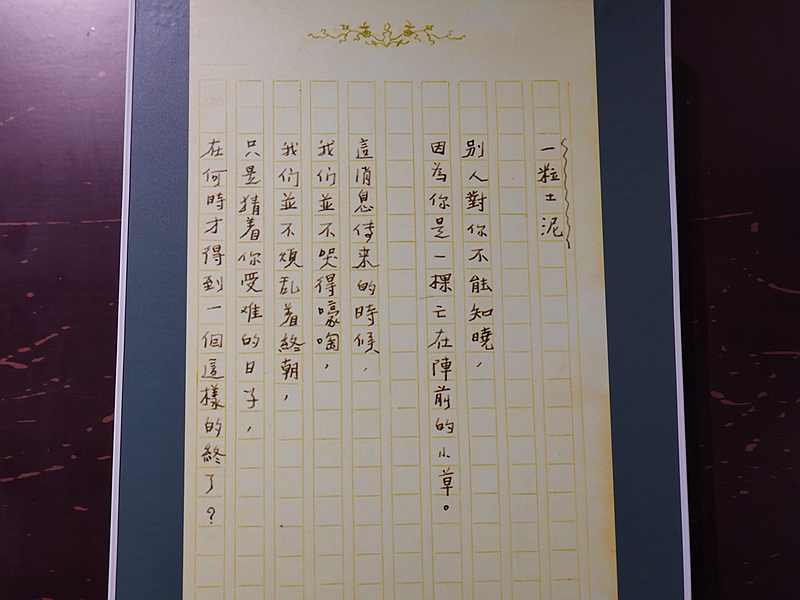 一粒土泥
別人對你不能知曉，
因為你是一棵亡在陣前的小草。
這消息傳来的時候，
我们並不哭得嚎啕，
我们並不煩乱着終朝，
只是猜着你受难的日子，
在何時才得到一個這樣的終了？